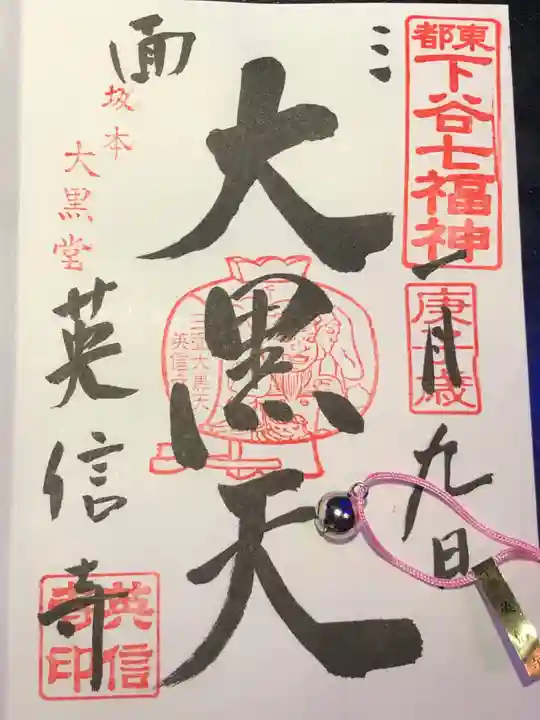 東都
下谷七福神
庚子歳
一月九日
三面
大黒天
三面大黒天
英信寺
坂本
大黒堂
英信寺
英信寺印